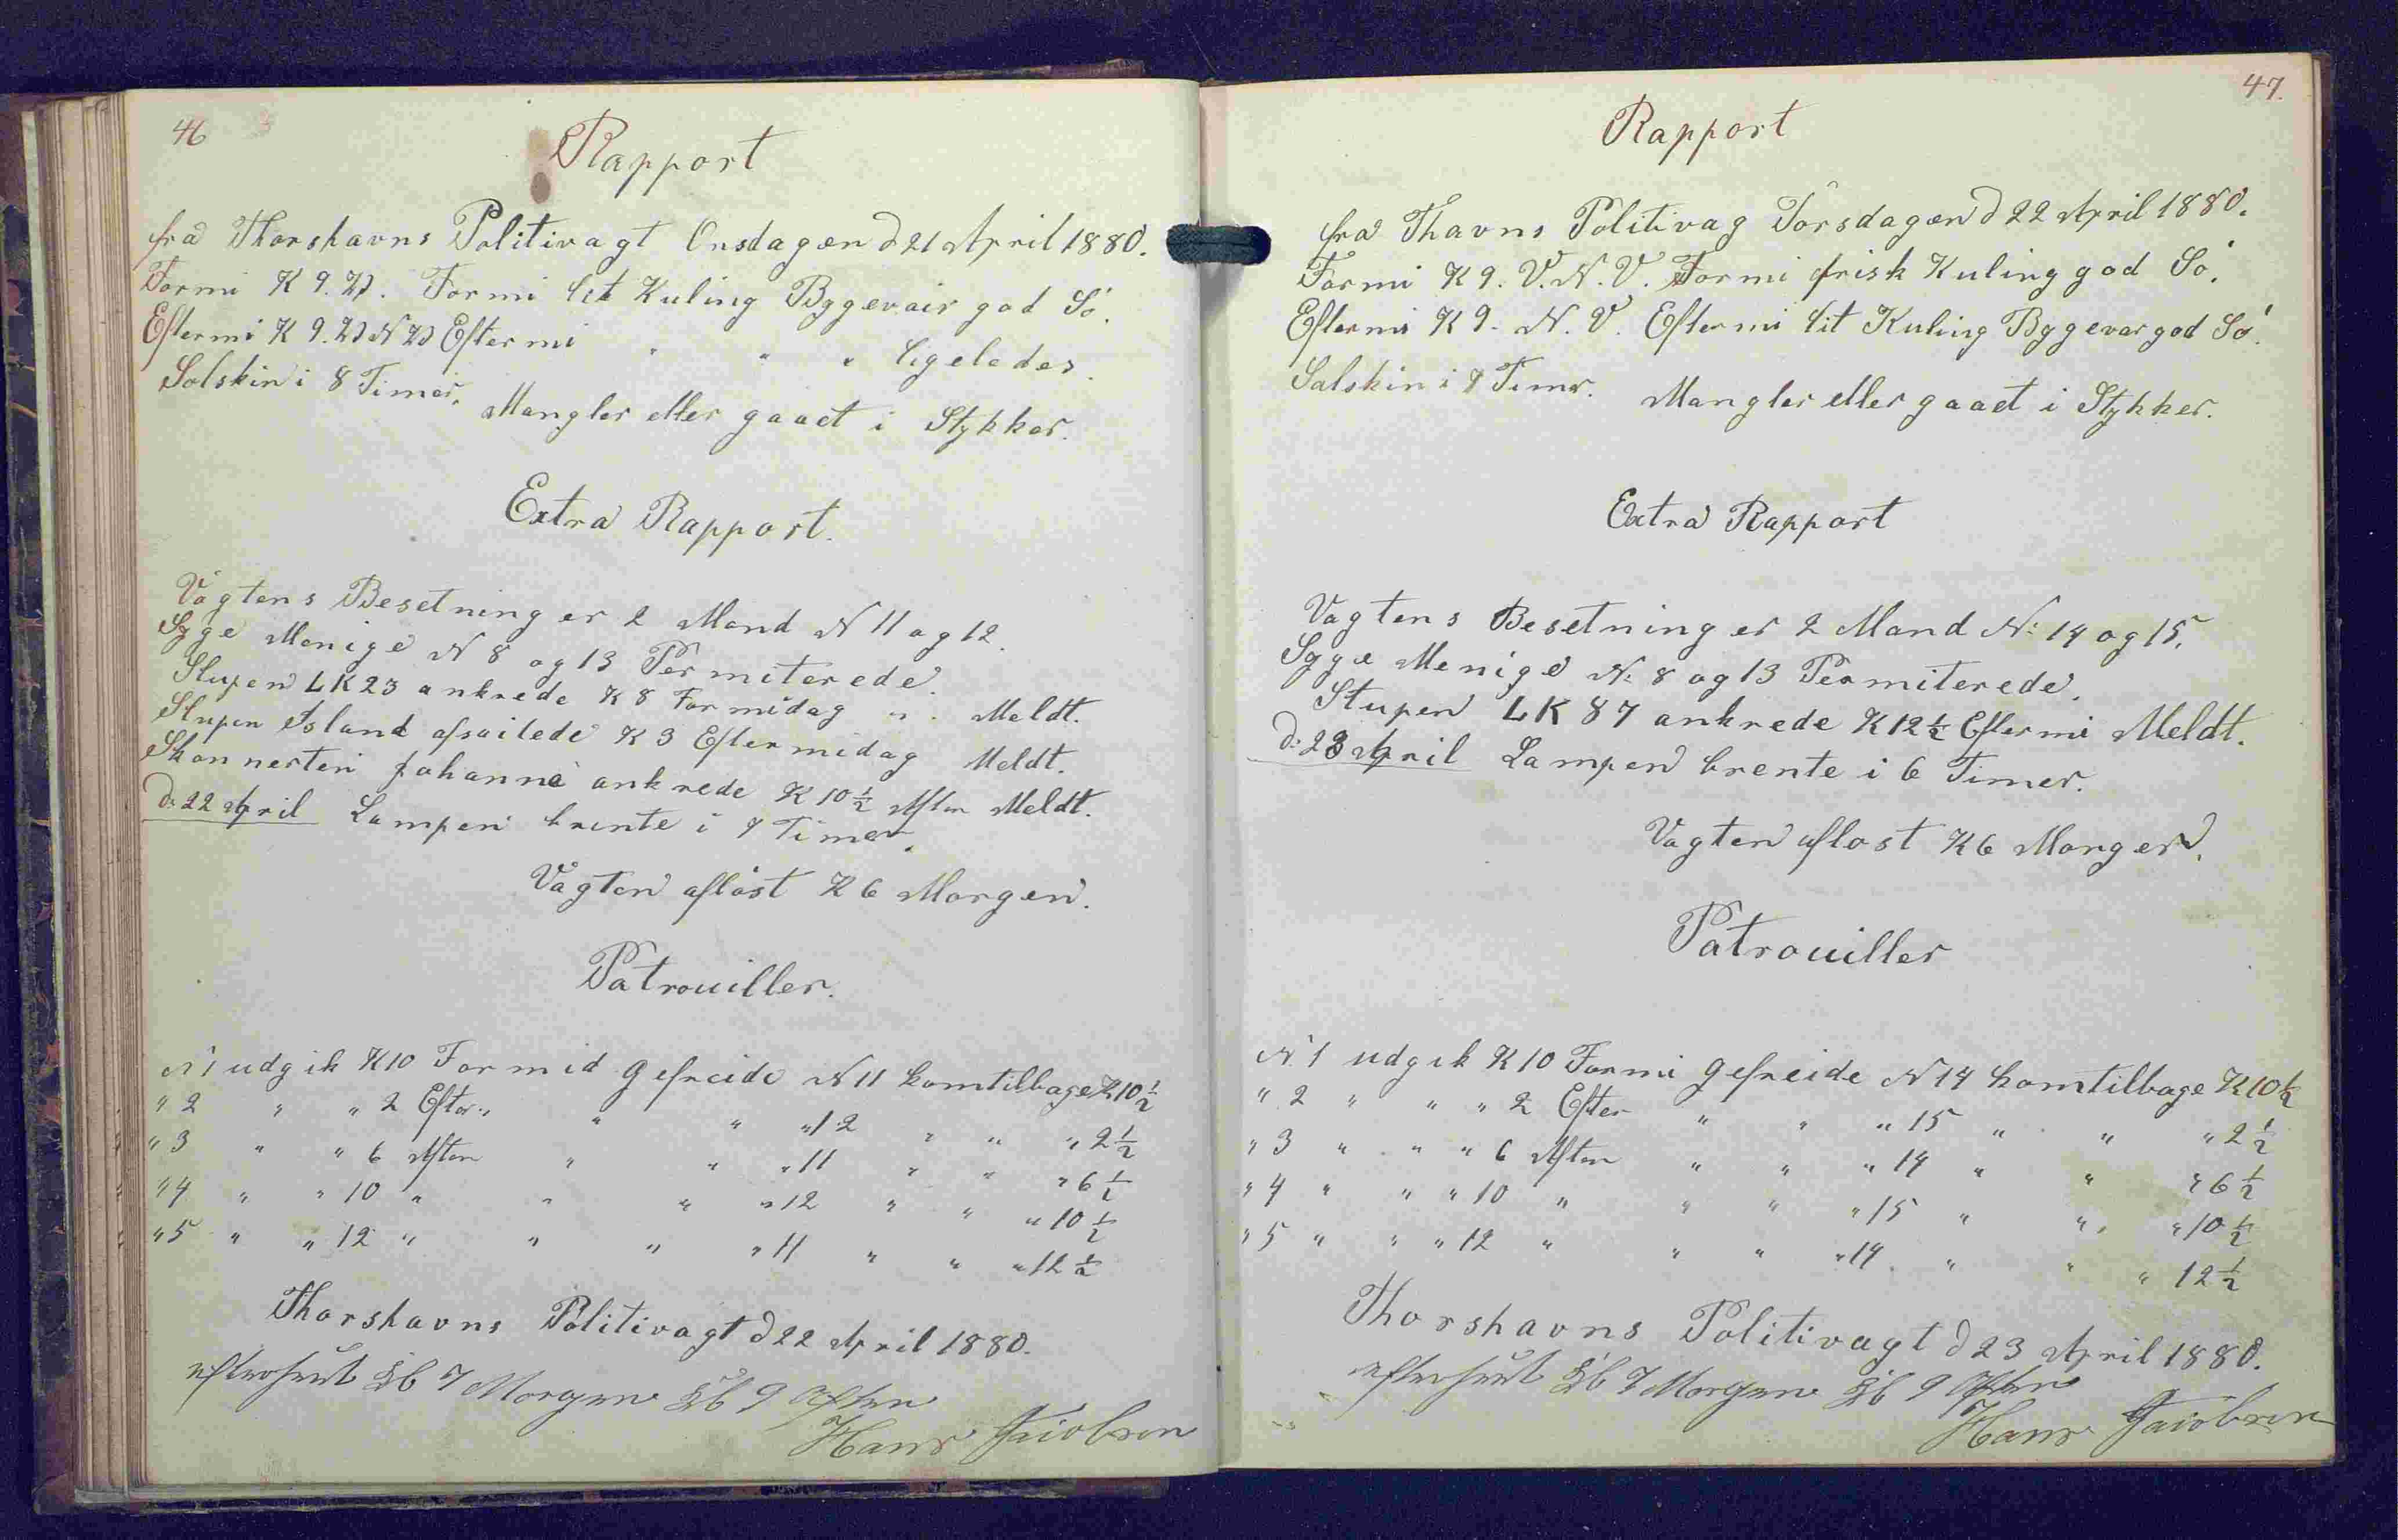 46
Rapport
fra Thorshavns Politivagt Onsdagen d 21 April 1880.
Formi K 9. V. Formi lit Kuling Byggevair god Sö.
Eftermi K 9. V N V Eftermi " " " ligeledes.
Solskin i 8 Timer.
Mangler eller gaaet i Stykker.
Extra Rapport.
Vagtens Besetning er 2 Mand N 11 og 12.
Syge Menige N 8 og 13 Permiterede.
Slupen LK 23 ankrede K 8 Formidag " . Meldt.
Slupen Island afsailede K 3 Eftermidag Meldt.
Skonnerten Johanne ankrede K 10 1/2 Aften Meldt.
d: 22 April Lampen brente i 7 Timer.
Vagten aflöst K 6 Morgen.
Patrouiller.
N 1 udgik K 10 Formid Gefreide N 11 komtilbage K 10 1/2
" 2 " " 2 Efter " " " 12 " " " 2 1/2
" 3 " " 6 Aften " " " 11 " " " 6 1/2
" 4 " " 10 " " " " 12 " " " 10 1/2
" 5 " " 12 " " " " 11 " " " 12 1/2
Thorshavns Politivagt d 22 April 1880.
efterseet Kl 7 Morgen Kl 9 Aften
Hans Jacobsen
47.
Rapport
fra Thavns Politivag Torsdagen d 22 April 1880.
Formi K 9. V. N. V. Formi frisk Kuling god Sö.
Eftermi K 9. N. V. Eftermi lit Kuling Byggevar god Sö.
Salskin i 7 Timer.
Mangler eller gaaet i Stykker.
Extra Rapport
Vagtens Besetning er 2 Mand N: 14 og 15.
Syge Menige N: 8 og 13 Permiterede.
Slupen LK 87 ankrede K 12 1/2 Eftermi Meldt.
d: 23 April Lampen brente i 6 Timer.
Vagten aflost K 6 Morgen.
Patrouiller
N. 1 udgik K 10 Formi Gefreide N 14 komtilbage K 10 1/2
" 2 " " " 2 Efter " " " 15 " " " 2 1/2
" 3 " " " 6 Aften " " " 14 " " " 6 1/2
" 4 " " " 10 " " " " 15 " " " 10 1/2
" 5 " " " 12 " " " " 14 " " " 12 1/2
Thorshavns Politivagt d 23 April 1880.
efterseet Kl 7 Morgen Kl 9 Aften
Hans Jacobsen